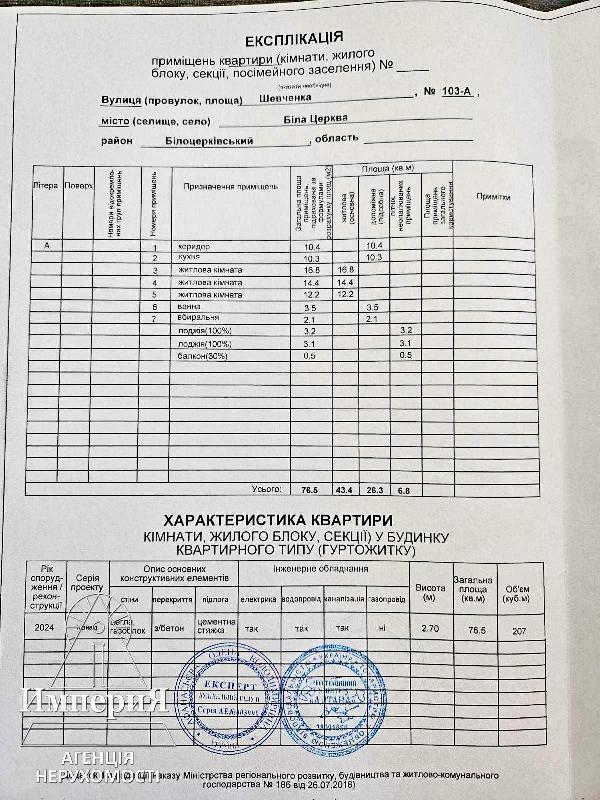 ЕКСПЛІКАЦІЯ
приміщень квартири (кімнати, жилого
блоку, секції, посімейного заселення) №
(вказати необхідне)
Вулиця (провулок, площа) Шевченка, № 103-А,
місто (селище, село) Біла Церква
район Білоцерківський, область
Літера Поверх Номери відокремле-них груп приміщень Номери приміщень Призначення приміщень Загальна площа приміщень, підрахована за формулами розрахунку площ (м2) Площа (кв.м) житлова (основна) допоміжна (підсобна) літніх, неопалюваних приміщень Площа приміщень загального користування Примітки
А 1 коридор 10.4 10.4
2 кухня 10.3 10.3
3 житлова кімната 16.8 16.8
4 житлова кімната 14.4 14.4
5 житлова кімната 12.2 12.2
6 ванна 3.5 3.5
7 вбиральня 2.1 2.1
лоджія(100%) 3.2 3.2
лоджія(100%) 3.1 3.1
балкон(30%) 0.5 0.5
Усього: 76.5 43.4 26.3 6.8
ХАРАКТЕРИСТИКА КВАРТИРИ
КІМНАТИ, ЖИЛОГО БЛОКУ, СЕКЦІЇ) У БУДИНКУ
КВАРТИРНОГО ТИПУ (ГУРТОЖИТКУ)
Рік споруд-ження / рекон-струкції Серія проекту Опис основних конструктивних елементів Інженерне обладнання Висота (м) Загальна площа (кв.м) Об'єм (куб.м)
стіни перекриття підлога електрика водопровід каналізація газопровід
2024 цегла газоблок з/бетон цементна стяжка так так так ні 2.70 76.5 207
ЕКСПЕРТ
Империя
АГЕНЦІЯ
НЕРУХОМОСТІ
наказу Міністерства регіонального розвитку, будівництва та житлово-комунального
господарства № 186 від 26.07.2018)